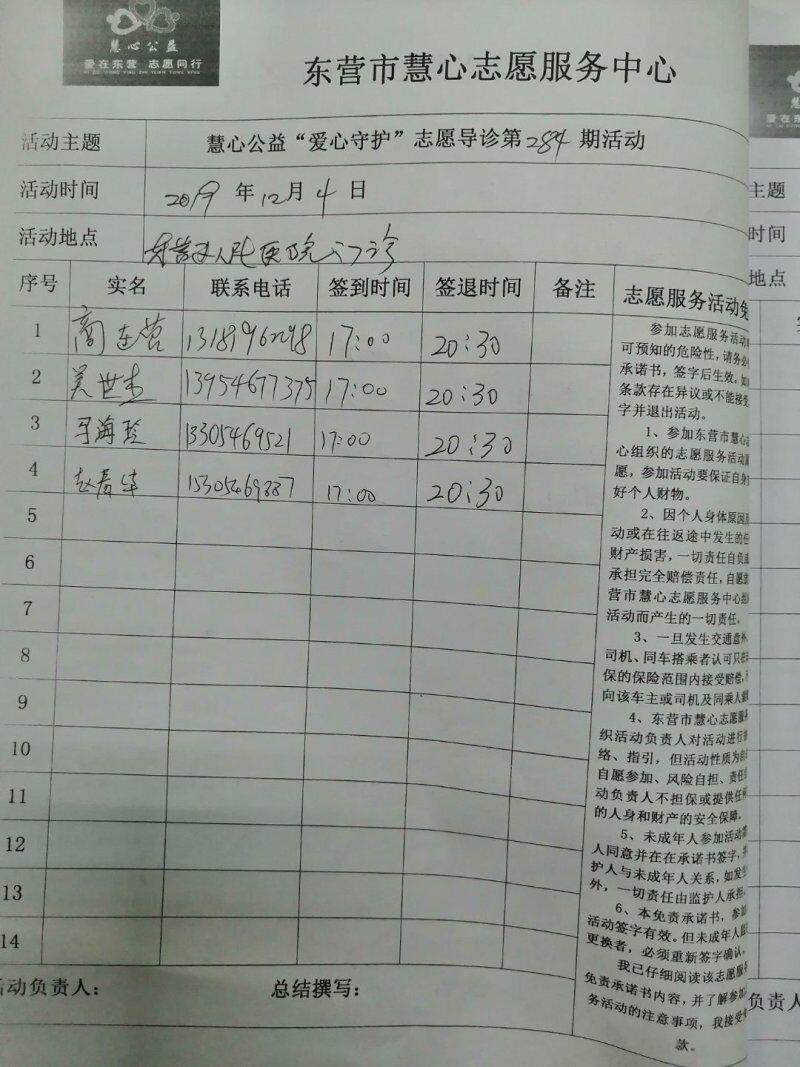 慧心公益
爱在东营 志愿同行
东营市慧心志愿服务中心
活动主题 慧心公益“爱心守护”志愿导诊第284期活动
活动时间 2019年12月4日
活动地点 东营市人民医院门诊
序号 实名 联系电话 签到时间 签退时间 备注
1 商连营 13181961298 17:00 20:30
2 吴世杰 13954677375 17:00 20:30
3 海玲 13305469521 17:00 20:30
4 赵春华 15305469887 17:00 20:30
5
6
7
8
9
10
11
12
13
14
活动负责人： 总结撰写：
志愿服务活动免
参加志愿服务活动
可预知的危险性，请务必
承诺书，签字后生效。如
条款存在异议或不能接受
字并退出活动。
1、参加东营市慧心志
心组织的志愿服务活动
愿，参加活动要保证自身
好个人财物。
2、因个人身体原因
动或在往返途中发生的任
财产损害，一切责任自负或
承担完全赔偿责任，自愿放
营市慧心志愿服务中心
活动而产生的一切责任。
3、一旦发生交通意外
司机、同车搭乘者认可只在
保的保险范围内接受赔偿，
向该车主或司机及同乘人
4、东营市慧心志愿服务
织活动负责人对活动进行
络、指引，但活动性质为
自愿参加、风险自担、责任
动负责人不担保或提供任
的人身和财产的安全保障。
5、未成年人参加活动
人同意并在在承诺书签字，
护人与未成年人关系，如发
外，一切责任由监护人承担。
6、本免责承诺书，参加
活动签字有效。但未成年人
更换者，必须重新签字确认。
我已仔细阅读该志愿服务
免责承诺书内容，并了解参加
务活动的注意事项，我接受
款。
主题
时间
地点
负责人